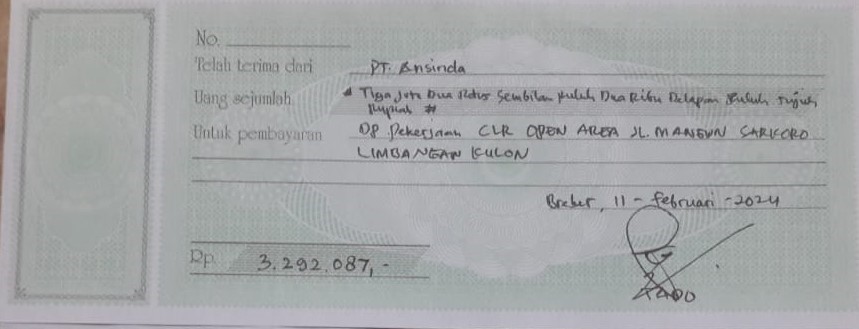 No.
Telah terima dari PT. Ansinda
Uang sejumlah # Tiga Juta Dua Ratus Sembilan Puluh Dua Ribu Delapan Puluh Tujuh
Rupiah #
Untuk pembayaran DP Pekerjaan CLR OPEN AREA JL. MANGUN SARKORO
LIMBANGAN KULON
Brebes, 11 - Februari - 2024
Rp. 3.292.087,-